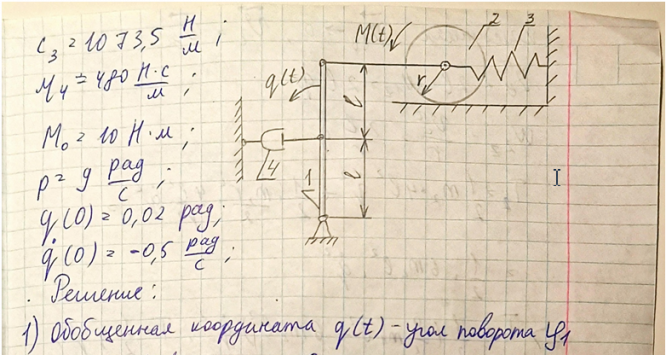 c₃ = 1073,5 Н/м ;
μ₄ = 480 Н·с/м ;
M₀ = 10 Н·м ;
p = 9 рад/с ;
q(0) = 0,02 рад;
q̇(0) = -0,5 рад/с ;
Решение:
1) Обобщенная координата q(t) - угол поворота φ₁
M(t)
2
3
q(t)
r
l
4
1
l